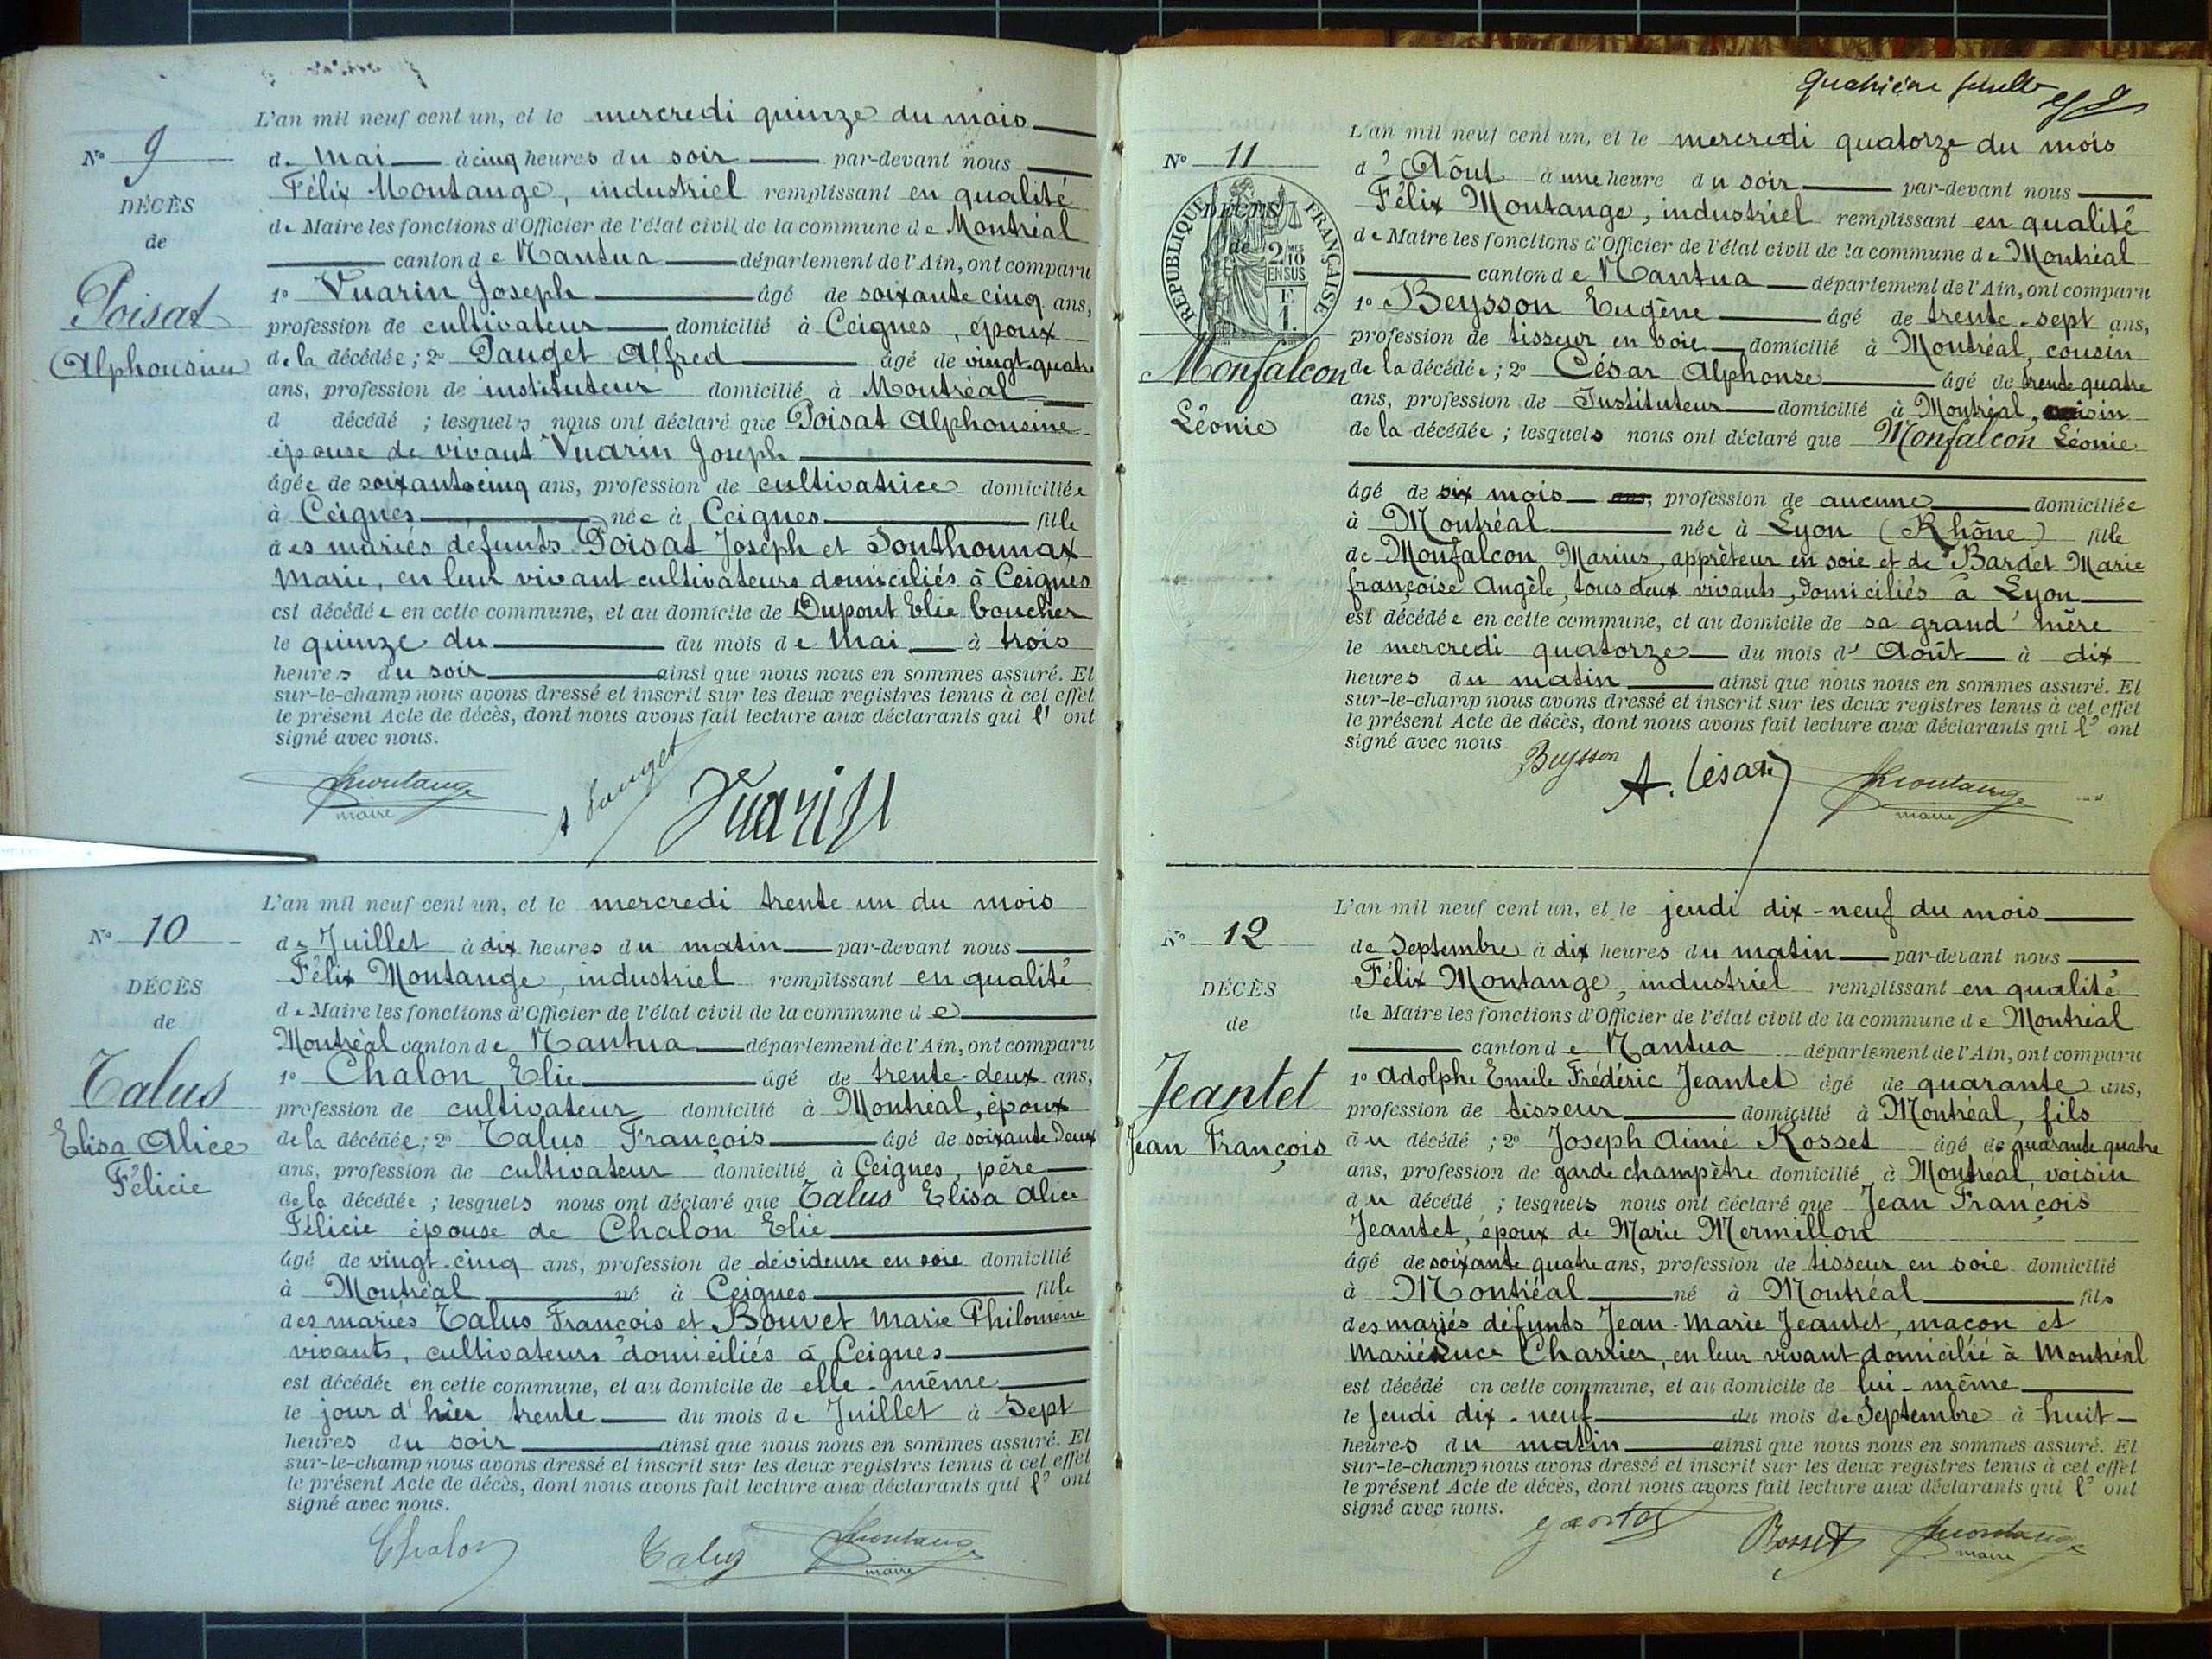 L'an mil neuf cent un, et le mercredi quinze du mois
No 9
de Mai à cinq heures du soir par-devant nous
Félix Montange, industriel remplissant en qualité
DÉCÈS
de Maire les fonctions d'Officier de l'état civil de la commune de Montréal
de
canton de Nantua département de l'Ain, ont comparu
1o Vuarin Joseph âgé de soixante cinq ans,
Poisat
profession de cultivateur domicilié à Ceignes, époux
Alphonsine
de la décédée ; 2o Pauget Alfred âgé de vingt-quatre
ans, profession de instituteur domicilié à Montréal
d décédé ; lesquels nous ont déclaré que Poisat Alphonsine
épouse de vivant Vuarin Joseph
âgée de soixante cinq ans, profession de cultivatrice domiciliée
à Ceignes née à Ceignes fille
des mariés défunts Poisat Joseph et Southonnax
Marie, en leur vivant cultivateurs domiciliés à Ceignes
est décédée en cette commune, et au domicile de Dupont Elie boucher
le quinze du du mois de Mai à trois
heures du soir ainsi que nous nous en sommes assuré. Et
sur-le-champ nous avons dressé et inscrit sur les deux registres tenus à cet effet
le présent Acte de décès, dont nous avons fait lecture aux déclarants qui l' ont
signé avec nous.
Montange
maire
A Pauget
Vuarin
L'an mil neuf cent un, et le mercredi trente un du mois
No 10
de Juillet à dix heures du matin par-devant nous
Félix Montange, industriel remplissant en qualité
DÉCÈS
de Maire les fonctions d'Officier de l'état civil de la commune de
de
Montréal canton de Nantua département de l'Ain, ont comparu
1o Chalon Elie âgé de trente-deux ans,
Talus
profession de cultivateur domicilié à Montréal, époux
Elisa Alice
de la décédée ; 2o Talus François âgé de soixante deux
ans, profession de cultivateur domicilié à Ceignes, père
Félicie
de la décédée ; lesquels nous ont déclaré que Talus Elisa Alice
Félicie épouse de Chalon Elie
âgé de vingt-cinq ans, profession de dévideuse en soie domicilié
à Montréal né à Ceignes fille
des mariés Talus François et Bouvet Marie Philomène
vivants, cultivateurs domiciliés à Ceignes
est décédée en cette commune, et au domicile de elle-même
le jour d'hier trente du mois de Juillet à Sept
heures du soir ainsi que nous nous en sommes assuré. Et
sur-le-champ nous avons dressé et inscrit sur les deux registres tenus à cet effet
le présent Acte de décès, dont nous avons fait lecture aux déclarants qui l' ont
signé avec nous.
Chalon
Talus
Montange
maire
quatrième feuille
L'an mil neuf cent un, et le mercredi quatorze du mois
No 11
d'Août à une heure du soir par-devant nous
Félix Montange, industriel remplissant en qualité
DÉCÈS
de
RÉPUBLIQUE FRANÇAISE
2/10 EN SUS
F. 1.
de Maire les fonctions d'Officier de l'état civil de la commune de Montréal
canton de Nantua département de l'Ain, ont comparu
1o Beysson Eugène âgé de trente-sept ans,
profession de tisseur en soie domicilié à Montréal, cousin
Monfalcon
de la décédée ; 2o César Alphonse âgé de trente quatre
ans, profession de Instituteur domicilié à Montréal, voisin
Léonie
de la décédée ; lesquels nous ont déclaré que Monfalcon Léonie
âgé de six mois ans, profession de aucune domiciliée
à Montréal née à Lyon (Rhône) fille
de Monfalcon Marius, apprêteur en soie et de Bardet Marie
françoise Angèle, tous deux vivants, domiciliés à Lyon
est décédée en cette commune, et au domicile de sa grand'mère
le mercredi quatorze du mois d'Août à dix
heures du matin ainsi que nous nous en sommes assuré. Et
sur-le-champ nous avons dressé et inscrit sur les deux registres tenus à cet effet
le présent Acte de décès, dont nous avons fait lecture aux déclarants qui l' ont
signé avec nous.
Beysson
A. César
Montange
maire
L'an mil neuf cent un, et le jeudi dix-neuf du mois
No 12
de Septembre à dix heures du matin par-devant nous
Félix Montange, industriel remplissant en qualité
DÉCÈS
de Maire les fonctions d'Officier de l'état civil de la commune de Montréal
de
canton de Nantua département de l'Ain, ont comparu
1o Adolphe Emile Frédéric Jeantet âgé de quarante ans,
Jeantet
profession de tisseur domicilié à Montréal, fils
Jean François
du décédé ; 2o Joseph Aimé Rosset âgé de quarante quatre
ans, profession de garde champêtre domicilié à Montréal, voisin
du décédé ; lesquels nous ont déclaré que Jean François
Jeantet, époux de Marie Mermillon
âgé de soixante quatre ans, profession de tisseur en soie domicilié
à Montréal né à Montréal fils
des mariés défunts Jean-Marie Jeantet, maçon et
Marie Luce Charrier, en leur vivant domicilié à Montréal
est décédé en cette commune, et au domicile de lui-même
le Jeudi dix-neuf du mois de Septembre à huit
heures du matin ainsi que nous nous en sommes assuré. Et
sur-le-champ nous avons dressé et inscrit sur les deux registres tenus à cet effet
le présent Acte de décès, dont nous avons fait lecture aux déclarants qui l' ont
signé avec nous.
Rosset
Montange
maire